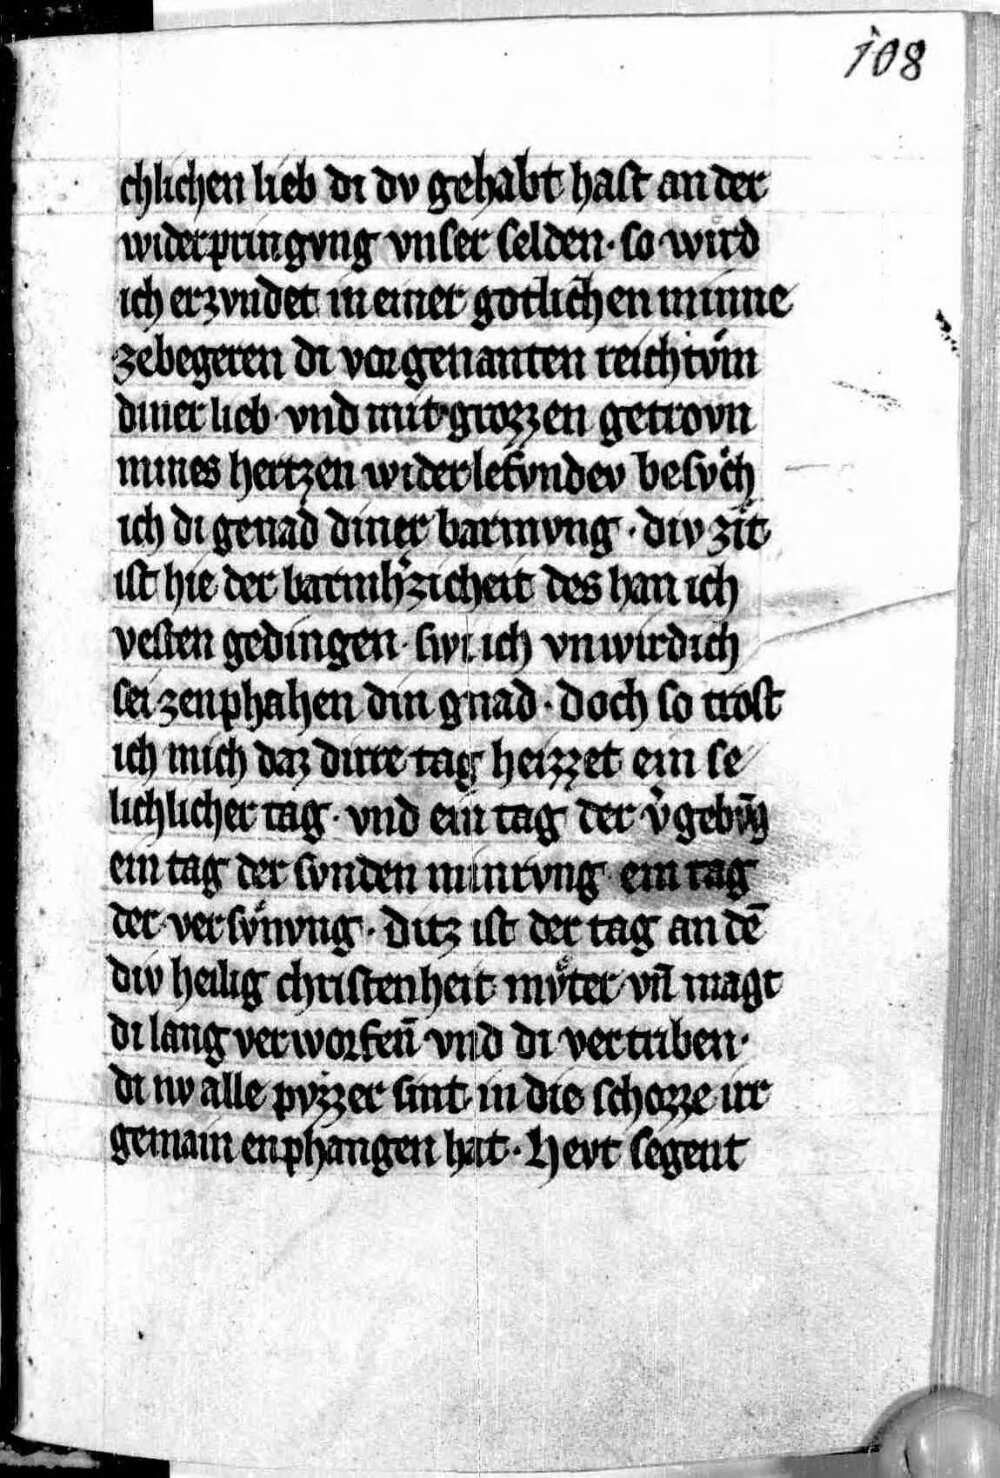 108
chlichen lieb di dv gehabt hast an der
widerpringvng vnser selden · so wuͤrd
ich erzvndet in einer gotlichen minne
zebegeren di vorgenanten reichtvͦm
diner lieb · vnd mit grozzen getrovn
mines hertzen wider
ich di genad diner barmvng · div zit
ist hie der barmhʼzicheit des han ich
vesten gedingen · swi ich vnwirdich
sei zenphahen din gnad · doch so trost
ich mich daz dirre tag heizzet ein se
lichlicher tag · vnd ein tag der vʼgebvͤg
ein tag der svnden minrvng ein tag
der versvͤnvng · ditz ist der tag an dē
div heilig christenheit mvͦter vn̄ magt
di lang verworfen̄ vnd di vertriben ·
di nv alle pvzzer sint in die schozze ir
gemain enphangen hat · Hevt segent